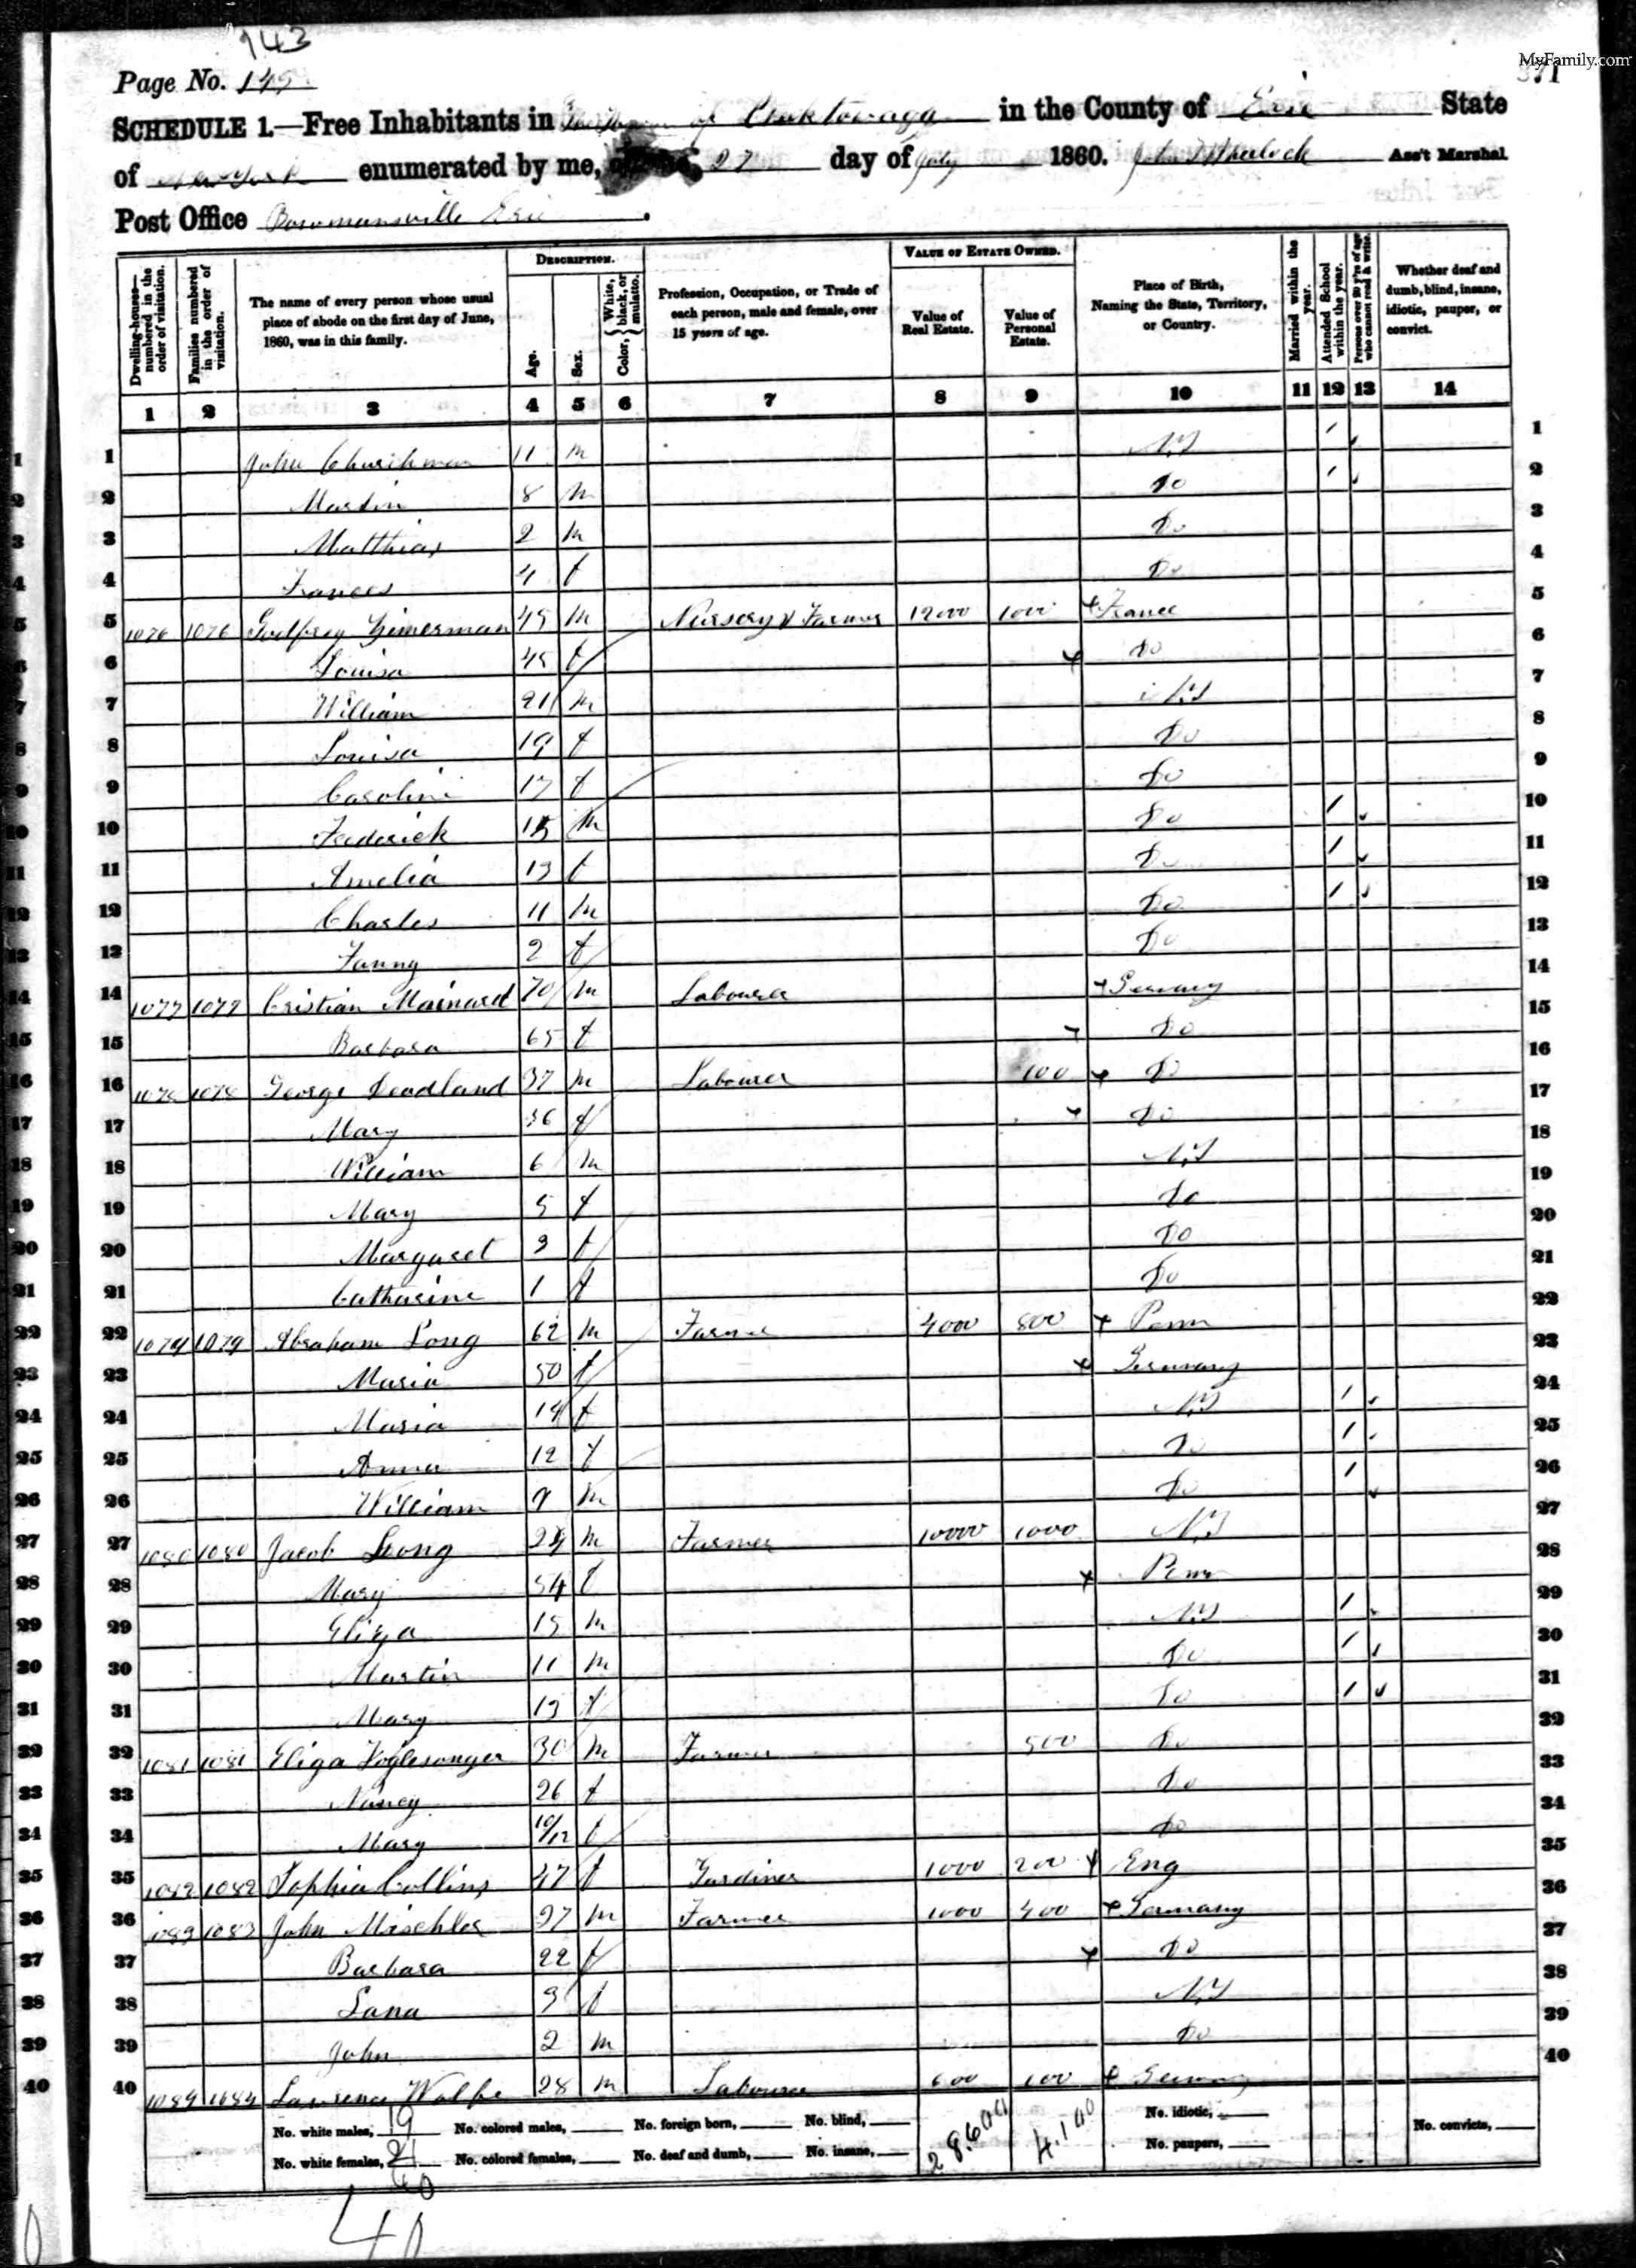 143
MyFamily.com
Page No. 145
371
SCHEDULE 1.—Free Inhabitants in The Town of Cheektowaga in the County of Erie State
of New York enumerated by me, 27 day of July 1860. John Wheelock Ass't Marshal
Post Office Bowmansville Erie
Dwelling-houses—numbered in the order of visitation.
Families numbered in the order of visitation.
The name of every person whose usual place of abode on the first day of June, 1860, was in this family.
DESCRIPTION.
Age.
Sex.
Color, { White, black, or mulatto.
Profession, Occupation, or Trade of each person, male and female, over 15 years of age.
VALUE OF ESTATE OWNED.
Value of Real Estate.
Value of Personal Estate.
Place of Birth, Naming the State, Territory, or Country.
Married within the year.
Attended School within the year.
Persons over 20 y'rs of age who cannot read & write.
Whether deaf and dumb, blind, insane, idiotic, pauper, or convict.
1 2 3 4 5 6 7 8 9 10 11 12 13 14
1 John Churchman 11 m NY / 1
2 Martin 8 m Do / 2
3 Matthias 2 m Do 3
4 Frances 4 f Do 4
5 1076 1076 Godfrey Zimerman 45 m Nursery & Farmer 12000 1000 + France 5
6 Louisa 45 f + Do 6
7 William 21 m NY 7
8 Louisa 19 f Do 8
9 Caroline 17 f Do 9
10 Frederick 15 m Do / 10
11 Amelia 13 f Do / 11
12 Charles 11 m Do / 12
13 Fanny 2 f Do 13
14 1077 1077 Cristian Mainard 70 m Labourer + Germany 14
15 Barbara 65 f + Do 15
16 1078 1078 George Deadland 37 m Labourer 100 + Do 16
17 Mary 36 f + Do 17
18 William 6 m NY 18
19 Mary 5 f Do 19
20 Margaret 3 f Do 20
21 Catharine 1 f Do 21
22 1079 1079 Abraham Long 62 m Farmer 4000 800 + Penn 22
23 Maria 50 f + Germany 23
24 Maria 14 f NY / 24
25 Anna 12 f Do / 25
26 William 9 m Do / 26
27 1080 1080 Jacob Long 24 m Farmer 10000 1000 NY 27
28 Mary 54 f + Penn 28
29 Eliza 15 m NY / 29
30 Martin 11 m Do / 30
31 Mary 13 f Do / 31
32 1081 1081 Eliga Voglesonger 30 m Farmer 500 Do 32
33 Nancy 26 f Do 33
34 Mary 10/12 f Do 34
35 1082 1082 Sophia Collins 47 f Gardiner 1000 200 + Eng 35
36 1083 1083 John Mischler 27 m Farmer 1000 400 + Germany 36
37 Barbara 22 f + Do 37
38 Lana 3 f NY 38
39 John 2 m Do 39
40 1084 1084 Lawrence Wolfe 28 m Labourer 600 100 + Germany 40
No. white males, 19 No. colored males, No. foreign born, No. blind, 28,600 4,100 No. idiotic, No. convicts,
No. white females, 21 No. colored females, No. deaf and dumb, No. insane, No. paupers,
40
40